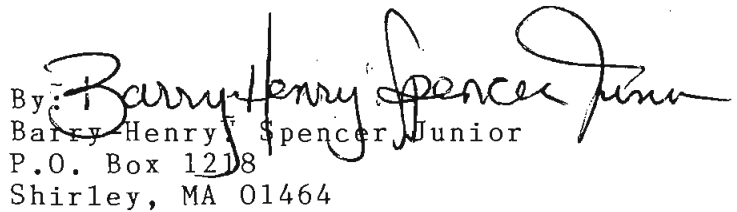 By: Barry Henry Spencer Junior
Barry-Henry: Spencer, Junior
P.O. Box 1218
Shirley, MA 01464